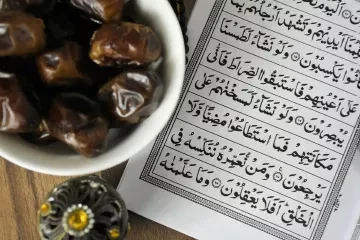 اَيْدِيْهِمْ وَتَشْهَدُ اَرْجُلُهُمْ بِمَا
يَكْسِبُوْنَ ۝ وَلَوْ نَشَآءُ لَطَمَسْنَا
عَلٰٓى اَعْيُنِهِمْ فَاسْتَبَقُوا الصِّرَاطَ فَاَنّٰى
يُبْصِرُوْنَ ۝ وَلَوْ نَشَآءُ لَمَسَخْنٰهُمْ عَلٰى
مَكَانَتِهِمْ فَمَا اسْتَطَاعُوْا مُضِيًّا وَّلَا
يَرْجِعُوْنَ ۝ وَمَنْ نُّعَمِّرْهُ نُنَكِّسْهُ فِى
الْخَلْقِ اَفَلَا يَعْقِلُوْنَ ۝ وَمَا عَلَّمْنٰهُ